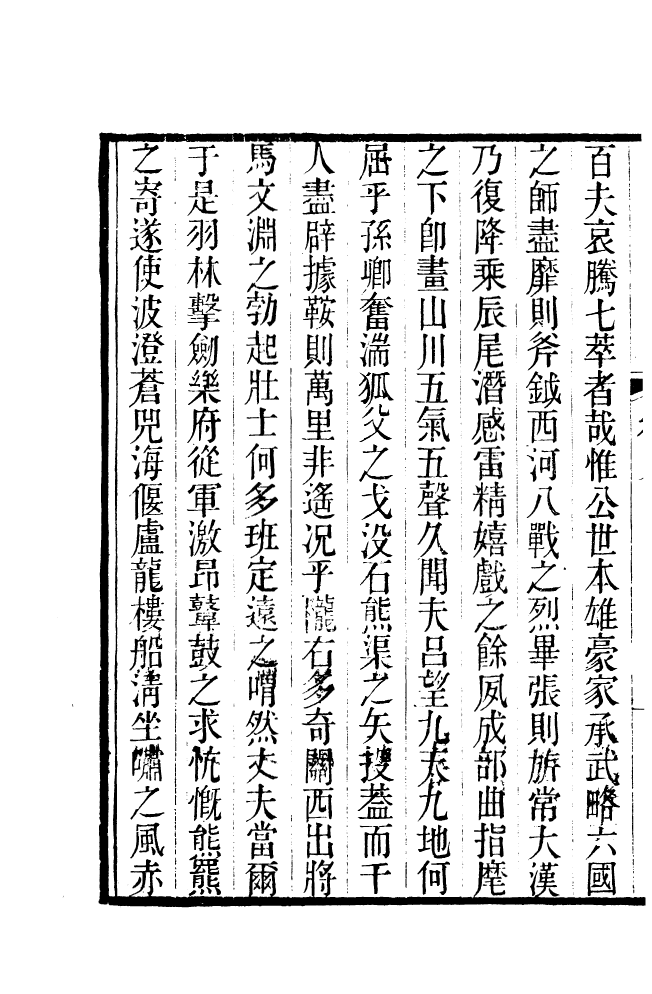 百夫哀騰七萃者哉惟公世本雄豪家承武略六國
之師盡靡則斧鉞西河八戰之烈畢張則旂常大漢
乃復降乘辰尾潛感雷精嬉戲之餘夙成部曲指麾
之下卽畫山川五氣五聲久聞夫呂望九天九地何
屈乎孫卿奮湍狐父之戈没石熊渠之矢擐葢而千
人盡辟據鞍則萬里非遙况乎隴右多奇關西出將
馬文淵之勃起壯士何多班定遠之喟然丈夫當爾
于是羽林擊劍樂府從軍激昂鼙鼓之求忼慨熊羆
之寄遂使波澄蒼兕海偃盧龍樓船淸坐嘯之風赤